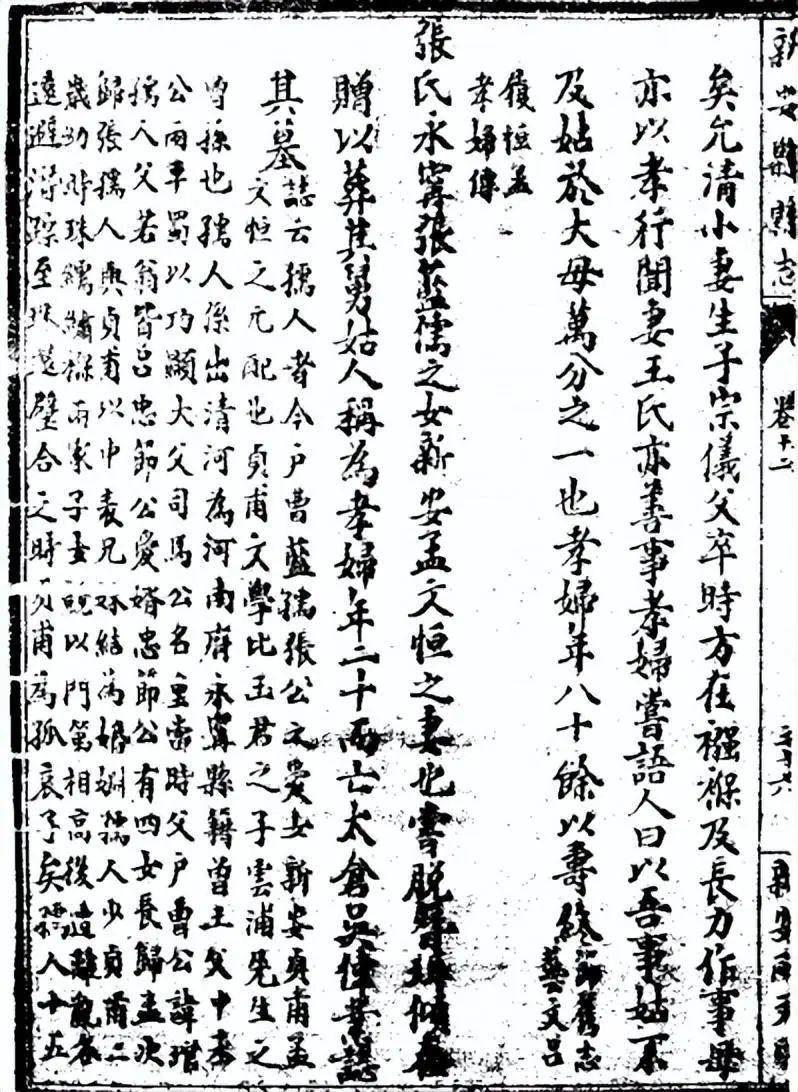 新安縣志
卷十二
三十六
矣允清小妻生子宗儀父卒時方在襁褓及長力作事母
亦以孝行聞妻王氏亦善事孝婦嘗語人曰以吾事姑不
及姑於大母萬分之一也孝婦年八十餘以壽終節舊志
藝文呂
履恒孟
孝婦傳
張氏永寧張藍孺之女新安孟文恒之妻也嘗脫簪珥傾奩
贈以葬其舅姑人稱為孝婦年二十而亡太倉吳偉業誌
其墓誌云孺人者今戶曹藍孺張公之愛女新安貞甫孟
文恒之元配也貞甫文學比玉君之子雲浦先生之
曾孫也孺人系出清河為河南府永寧縣籍曾王父中丞
公兩平蜀以功顯大父司馬公名重當時父戶曹公諱瑨
孺人父若翁皆呂忠節公愛婿忠節公有四女長歸孟次
歸張孺人與貞甫以中表兄妹結為婚姻孺人少貞甫二
歲幼時珠繻繡褓兩家子女既以門第相高後遭離亂各
遠避潛蹤至珠還璧合之時貞甫為孤哀子矣孺人十五